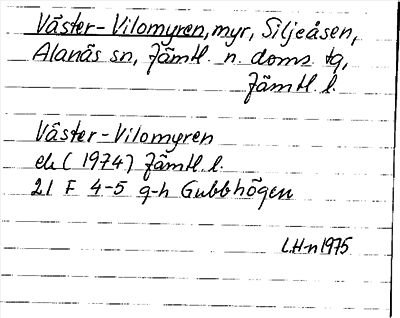 Väster-Vilomyren, myr, Siljeåsen,
Alanäs sn, Jämtl. n. doms. tg,
Jämtl. l.
Väster-Vilomyren
ek (1974) Jämtl. l.
21 F 4-5 g-h Gubbhögen
L.H-n 1975